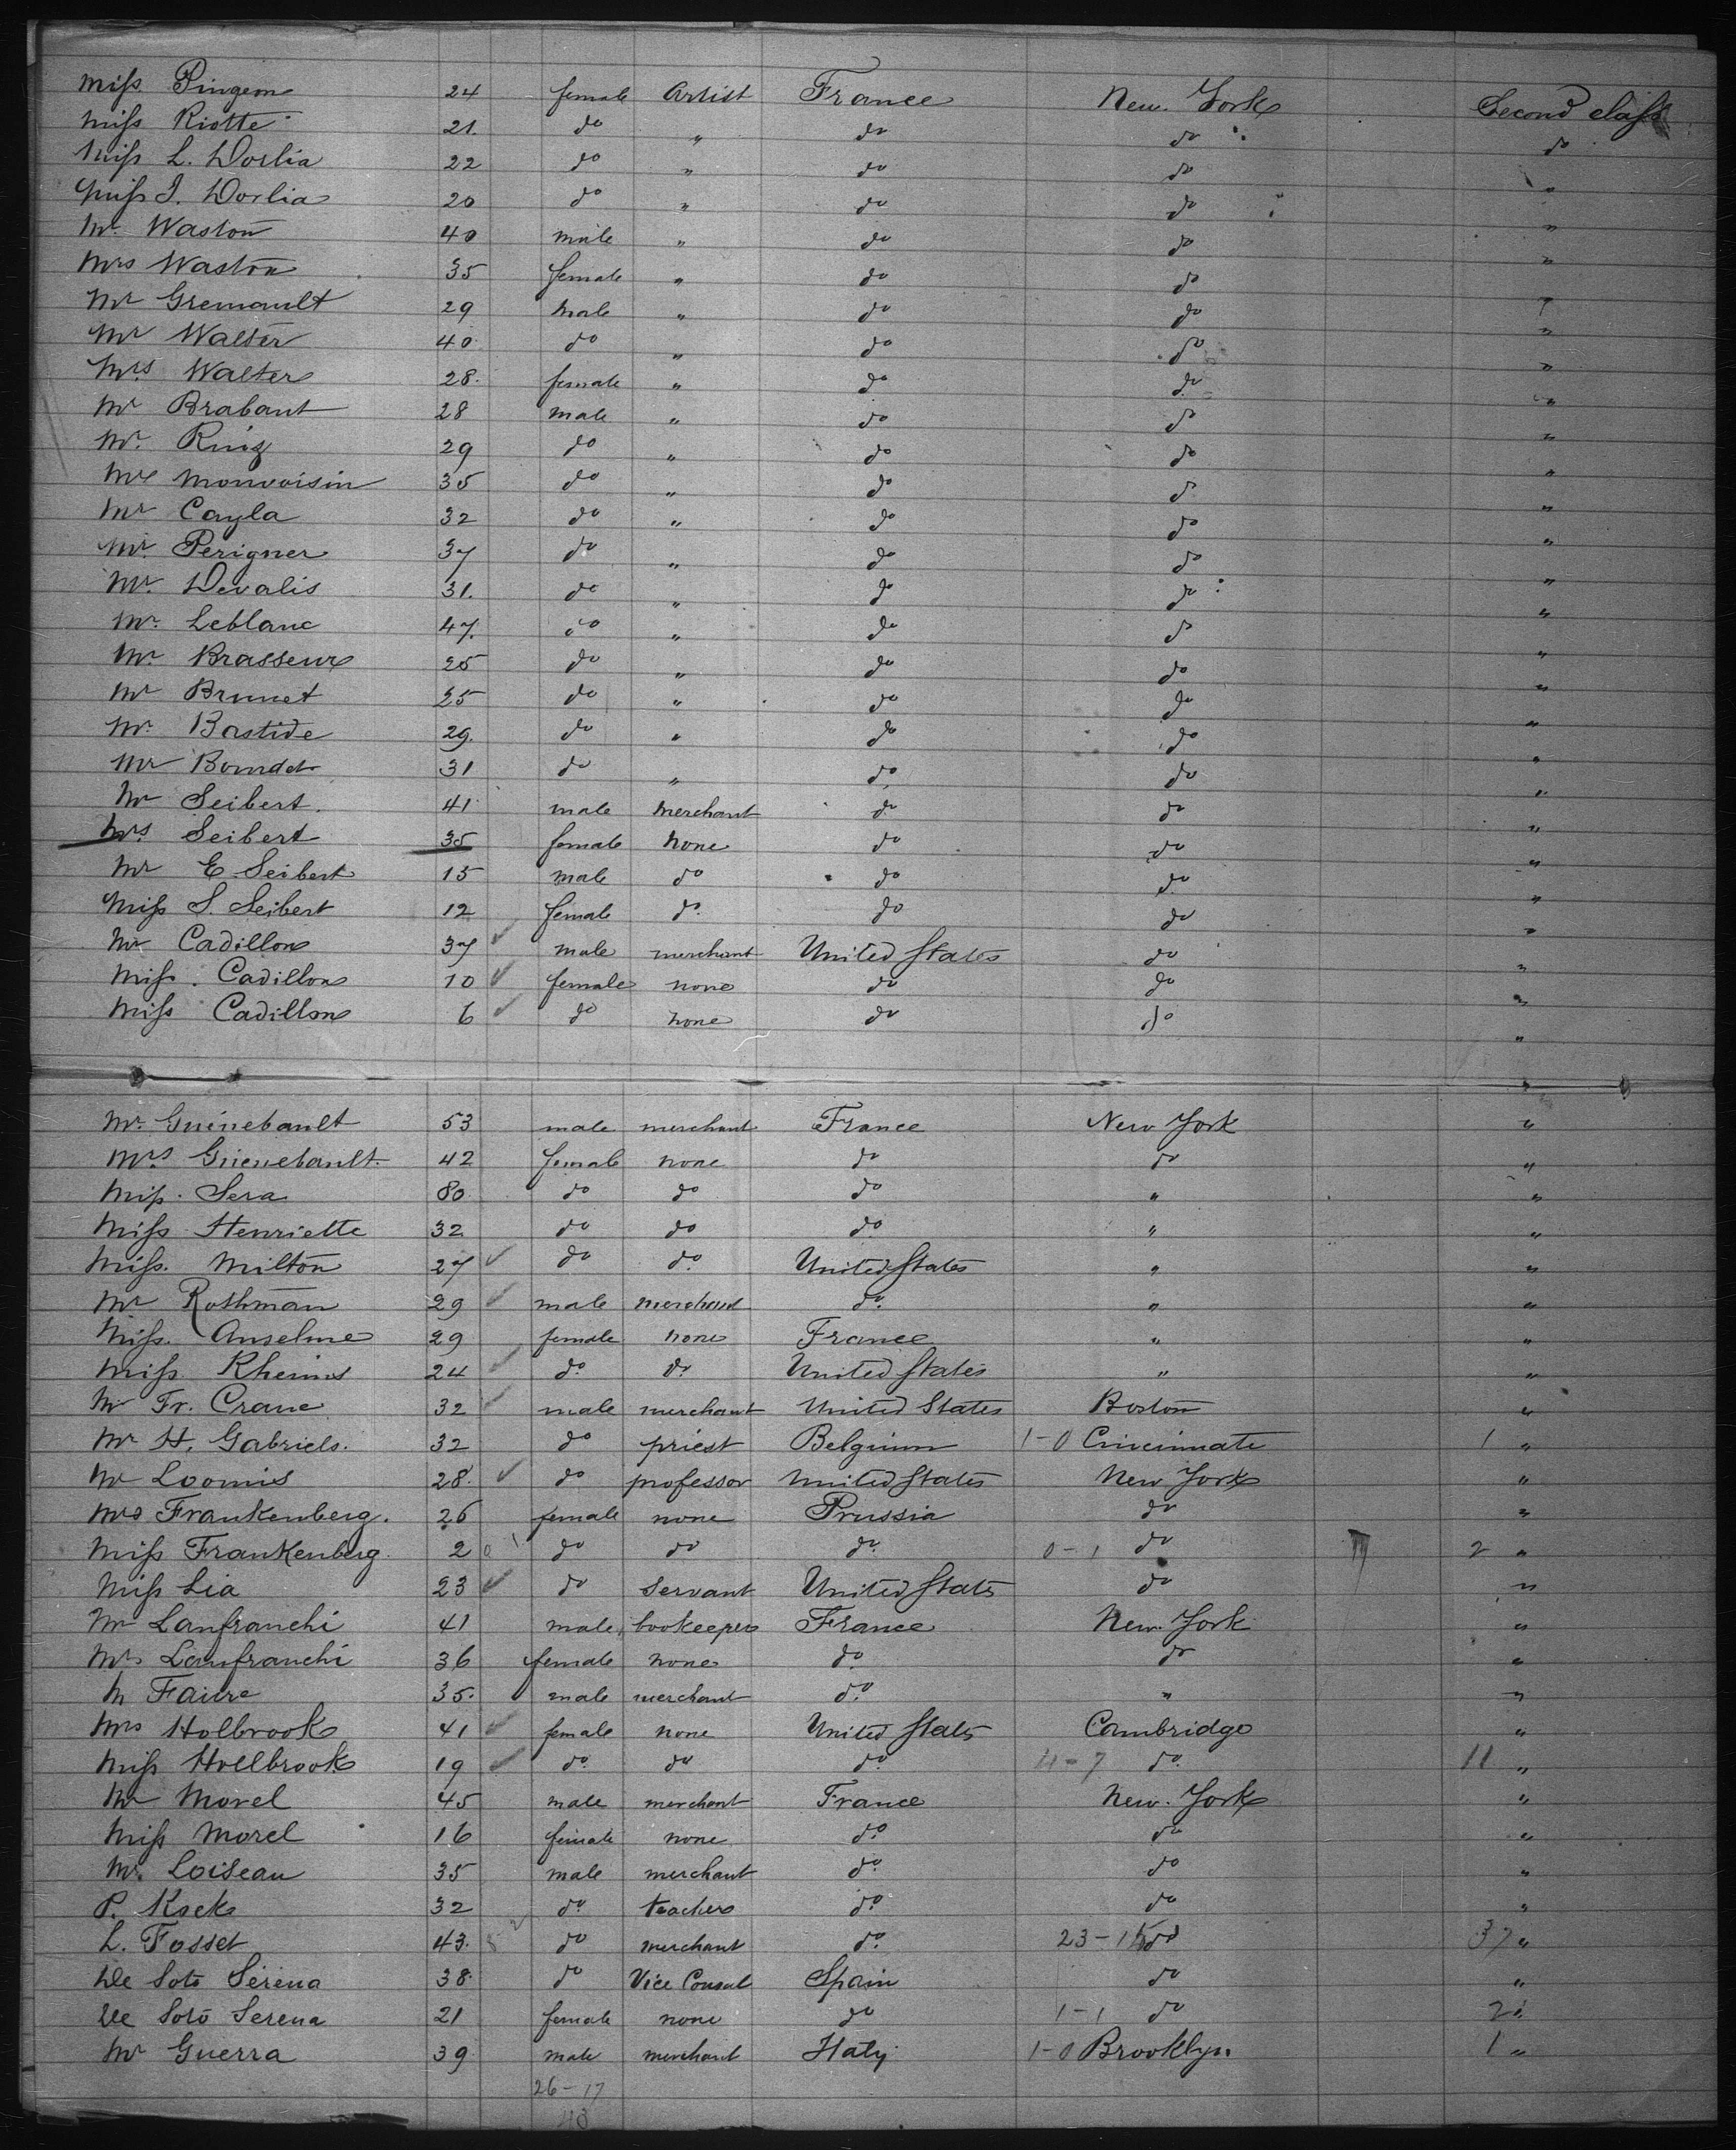 Miss Pingeon 24 female Artist France New York Second class
Miss Riotte 21. do " do do do
Miss L. Dorlia 22 do " do do "
Miss J. Dorlia 20 do " do do "
Mr. Waston 40 male " do do "
Mrs Waston 35 female " do do "
Mr Gremault 29 male " do do "
Mr Walter 40 do " do do "
Mrs Walter 28. female " do do "
Mr Brabant 28 male " do do "
Mr. Ruiz 29 do " do do "
Mr Monvoisin 35 do " do do "
Mr Cayla 32 do " do do "
Mr. Perigner 37 do " do do "
Mr. Devalis 31. do " do do "
Mr. Leblanc 47. do " do do "
Mr. Brasseur 25 do " do do "
Mr Brunet 25 do " do do "
Mr. Bastide 29. do " do do "
Mr Bourdet 31 do " do do "
Mr Seibert. 41 male merchant do do "
Mrs Seibert 35 female none do do "
Mr E. Seibert 15 male do do do "
Miss S. Seibert 12 female do. do do "
Mr Cadillon 37 male merchant United States do "
Miss. Cadillon 10 female none do do "
Miss Cadillon 6 do none do do "
Mr. Guinebault 53 male merchant France New York "
Mrs Guinebault. 42 female none do do "
Miss. Sera 80. do do do " "
Miss Henriette 32 do do do " "
Miss. Milton 27 do do. United States " "
Mr Rothman 29 male merchant do. " "
Miss. Anselme 29 female none France " "
Miss. Rheims 24 do. do. United States " "
Mr Fr. Crane 32 male merchant United States Boston "
Mr H. Gabriels. 32 do priest Belgium 1-0 Cincinnate 1 "
Mr Loomis 28. do professor United States New York "
Mrs Frankenberg. 26 female none Prussia do "
Miss Frankenberg. 2 do do do. 0-1 do 2 "
Miss Lia 23 do Servant United States do "
Mr Lanfranchi 41 male bookeeper France New York "
Mrs Lanfranchi 36 female none do. do "
M Faivre 35. male merchant do. " "
Mrs Holbrook 41 female none United States Cambridge "
Miss Hollbrook 19 do. do do. 4-7 do. 11 "
Mr Morel 45 male merchant France New York "
Miss Morel 16 female none do. do "
Mr. Loiseau 35 male merchant do. do "
P. Kock 32 do. teacher do. do "
L. Fosset 43. do merchant do. 23-15 do 37 "
De Soto Serena 38. do Vice Consul Spain do "
De Soto Serena 21 female none do 1-1 do 2 "
Mr Guerra 39 male merchant Italy 1-0 Brooklyn 1 "
26-17
43